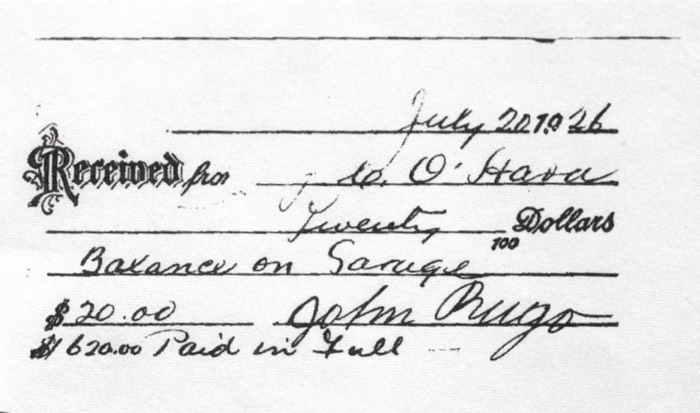 July 20 1926
Received from C. O'Hara
Twenty 100 Dollars
Balance on Garage
$20.00 John Rugo
$1620.00 Paid in Full